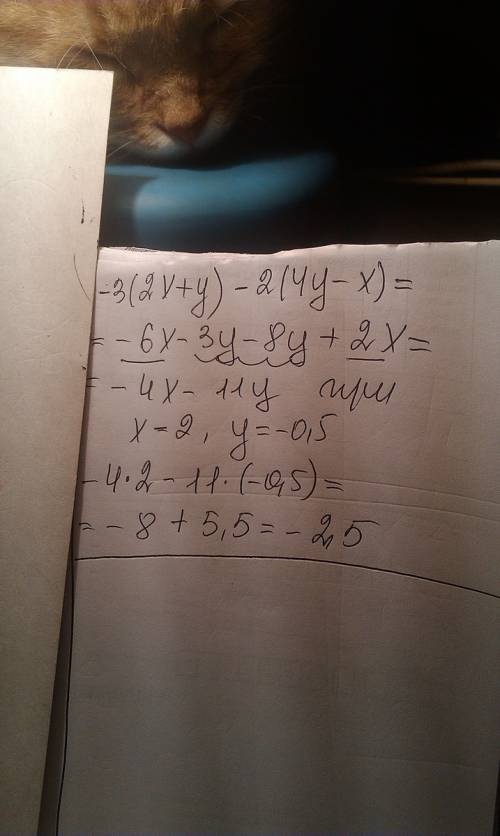 -3(2x+y) - 2(4y - x) =
= - 6x - 3y - 8y + 2x =
= - 4x - 11y при
x = 2, y = -0,5
-4·2 - 11·(-0,5) =
= - 8 + 5,5 = - 2,5